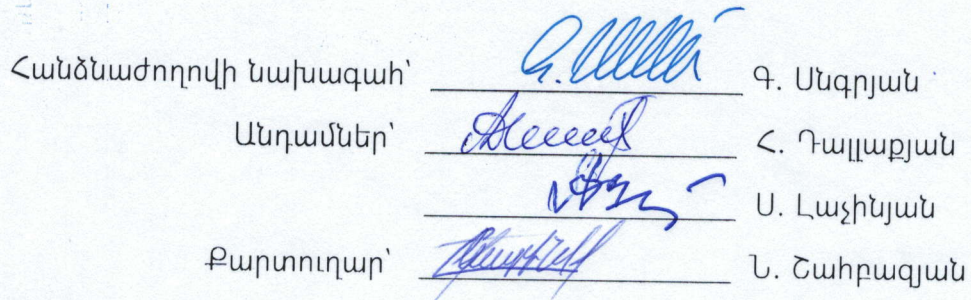 Հանձնաժողովի նախագահ՝ Գ. Սնգրյան
Անդամներ՝ Հ. Դալլաքյան
Ս. Լաչինյան
Քարտուղար՝ Ն. Շահբազյան